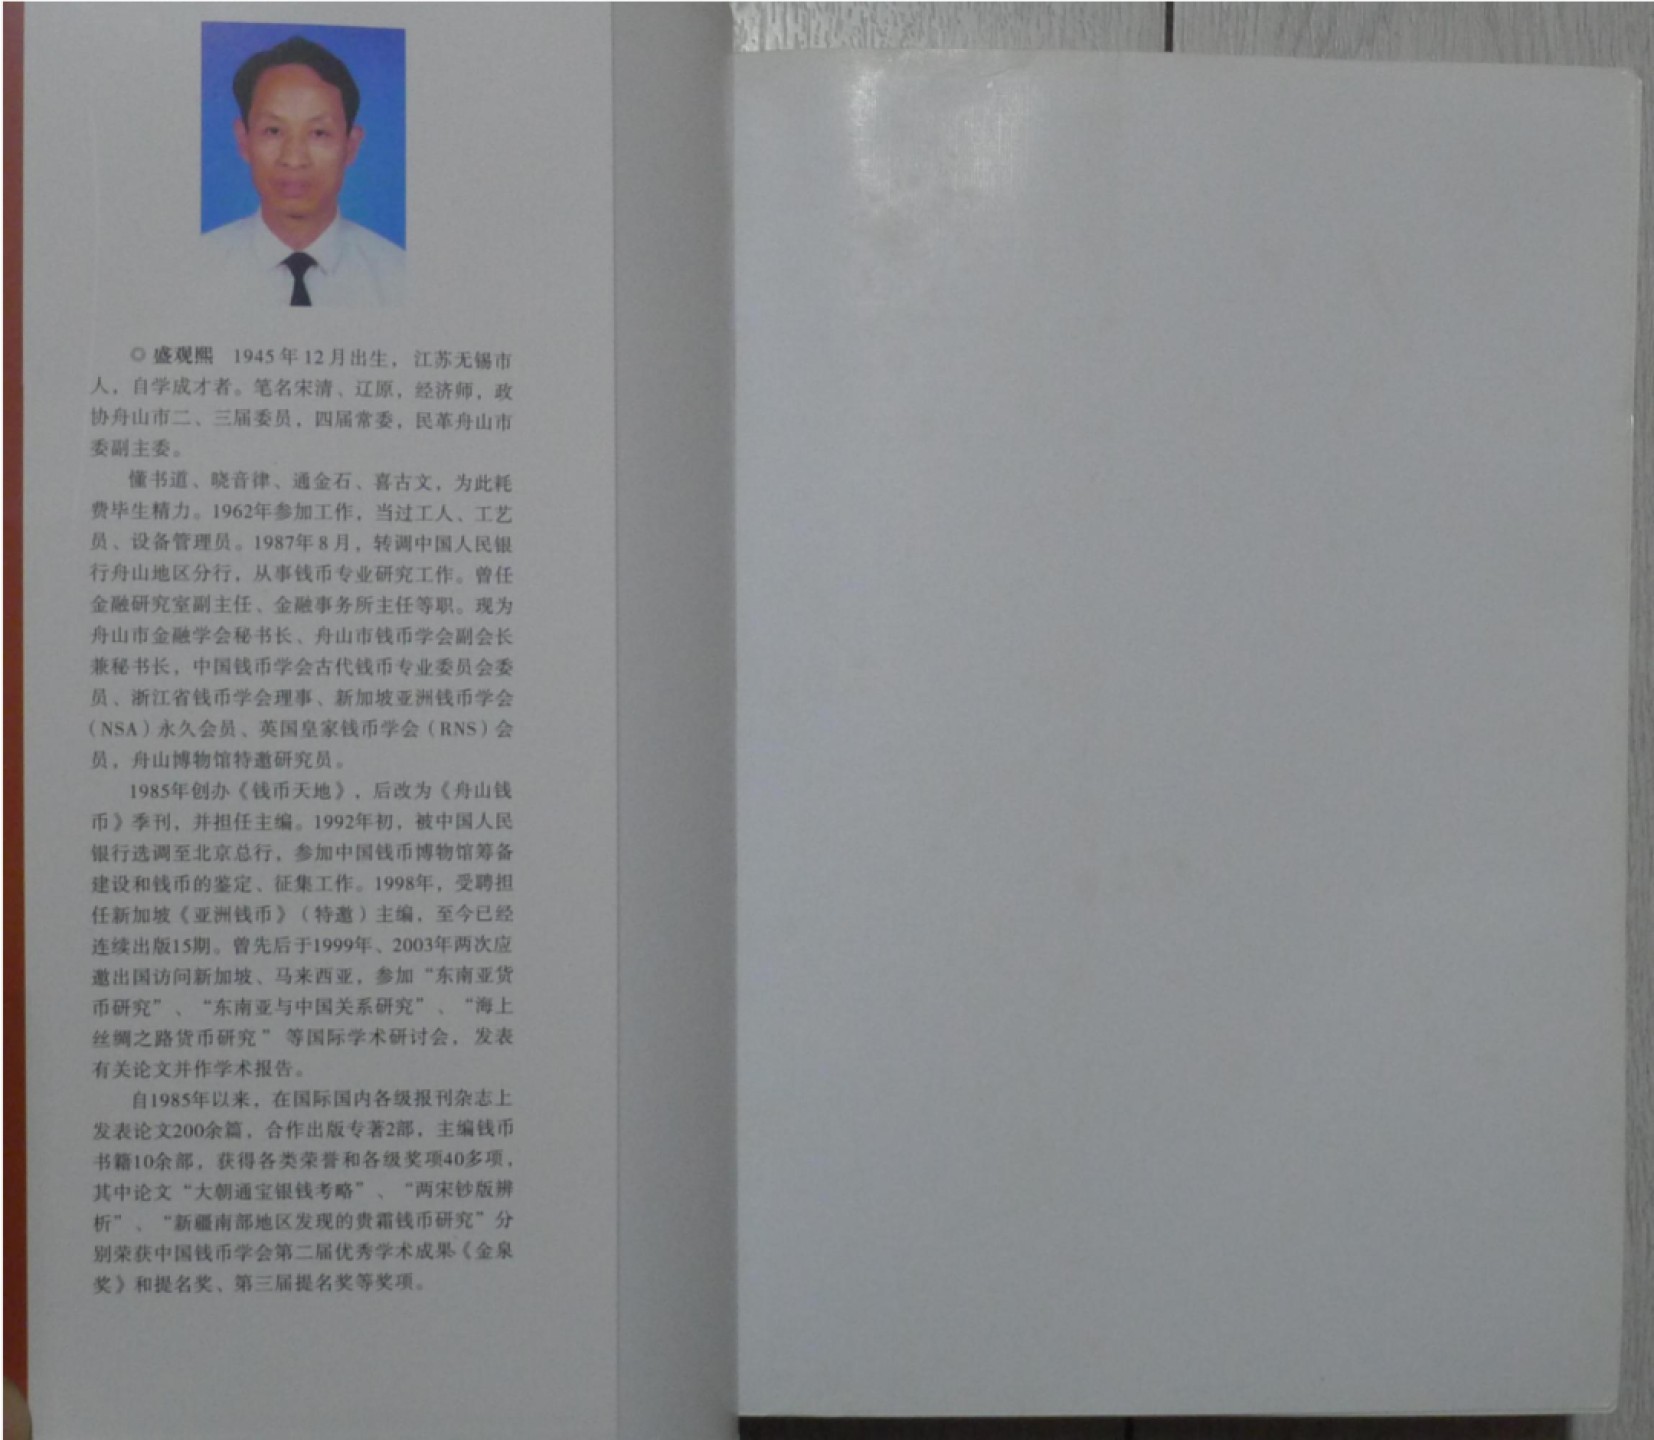 ◎ 盛观熙 1945年12月出生，江苏无锡市
人，自学成才者。笔名宋清、辽原，经济师，政
协舟山市二、三届委员，四届常委，民革舟山市
委副主委。
懂书道、晓音律、通金石、喜古文，为此耗
费毕生精力。1962年参加工作，当过工人、工艺
员、设备管理员。1987年8月，转调中国人民银
行舟山地区分行，从事钱币专业研究工作。曾任
金融研究室副主任、金融事务所主任等职。现为
舟山市金融学会秘书长、舟山市钱币学会副会长
兼秘书长，中国钱币学会古代钱币专业委员会委
员、浙江省钱币学会理事、新加坡亚洲钱币学会
（NSA）永久会员、英国皇家钱币学会（RNS）会
员，舟山博物馆特邀研究员。
1985年创办《钱币天地》，后改为《舟山钱
币》季刊，并担任主编。1992年初，被中国人民
银行选调至北京总行，参加中国钱币博物馆筹备
建设和钱币的鉴定、征集工作。1998年，受聘担
任新加坡《亚洲钱币》（特邀）主编，至今已经
连续出版15期。曾先后于1999年、2003年两次应
邀出国访问新加坡、马来西亚，参加“东南亚货
币研究”、“东南亚与中国关系研究”、“海上
丝绸之路货币研究”等国际学术研讨会，发表
有关论文并作学术报告。
自1985年以来，在国际国内各级报刊杂志上
发表论文200余篇，合作出版专著2部，主编钱币
书籍10余部，获得各类荣誉和各级奖项40多项，
其中论文“大朝通宝银钱考略”、“两宋钞版辨
析”、“新疆南部地区发现的贵霜钱币研究”分
别荣获中国钱币学会第二届优秀学术成果《金泉
奖》和提名奖、第三届提名奖等奖项。